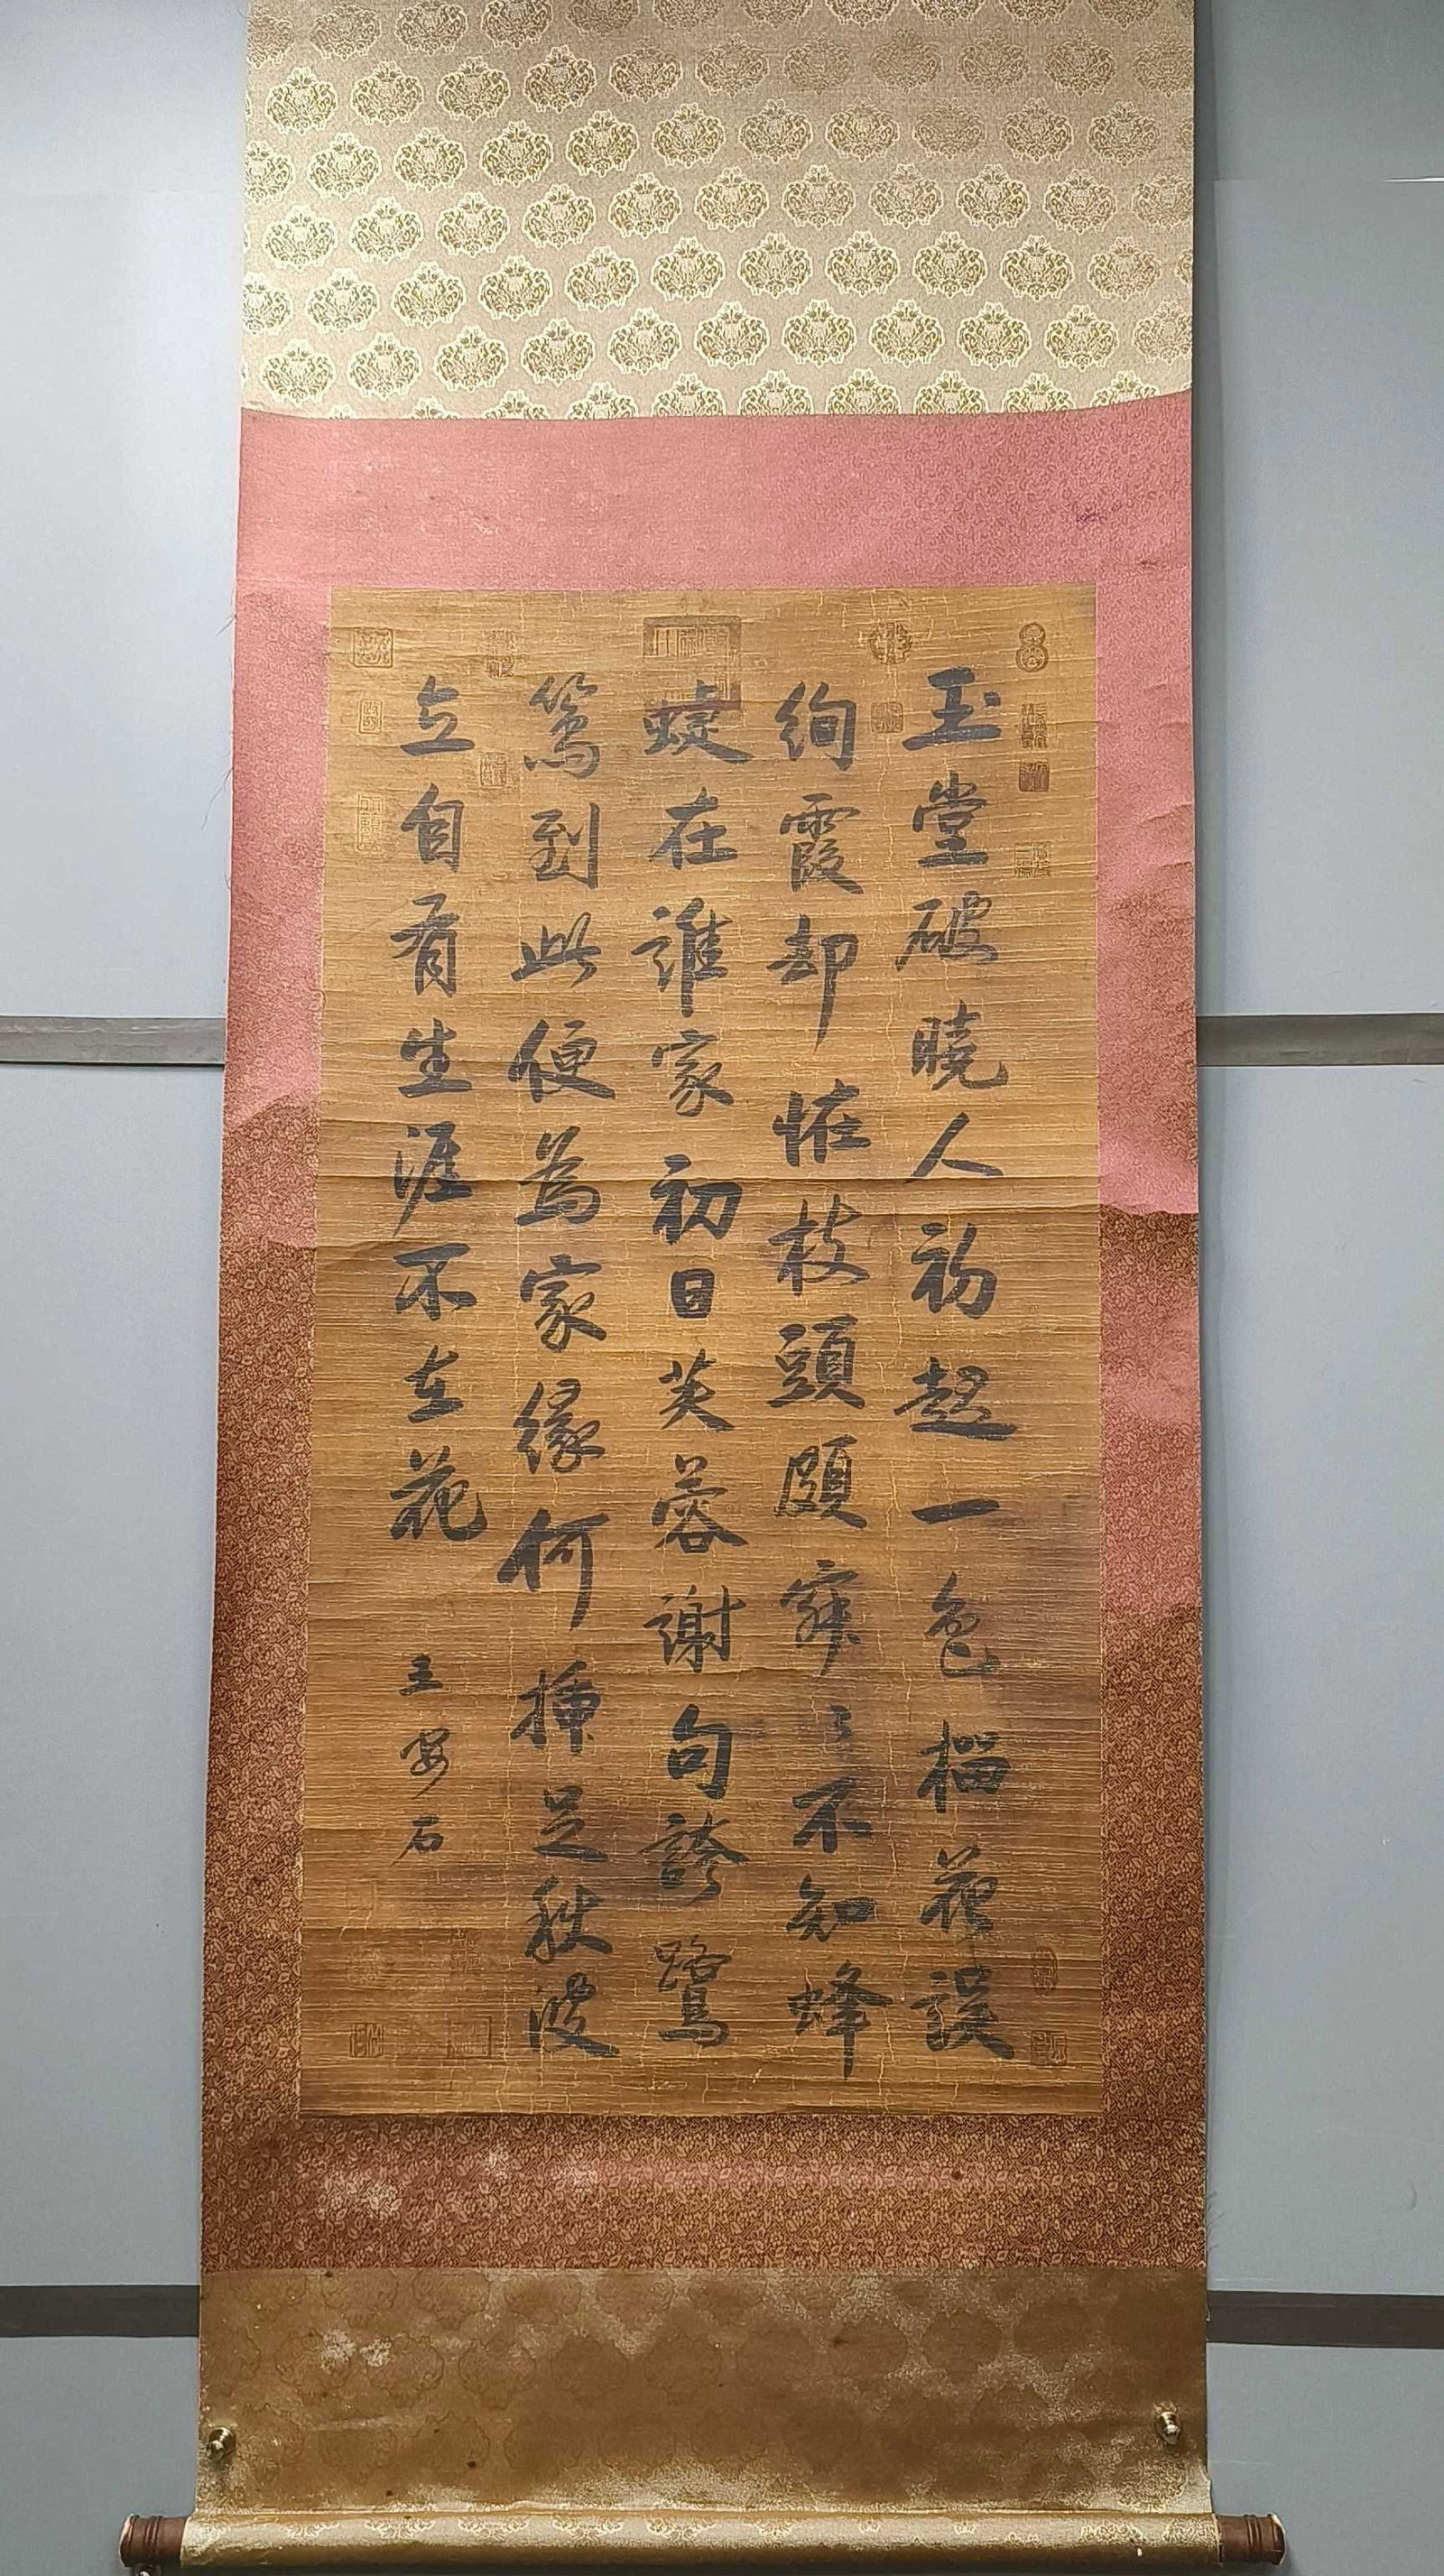 玉堂破曉人初起一色榴花誤
絢霞却恠枝頭頗寂々不知蜂
蜨在誰家初日芙蓉謝句誇鷺
鷥到此便為家緣何插足秋波
立自有生涯不在花
王安石